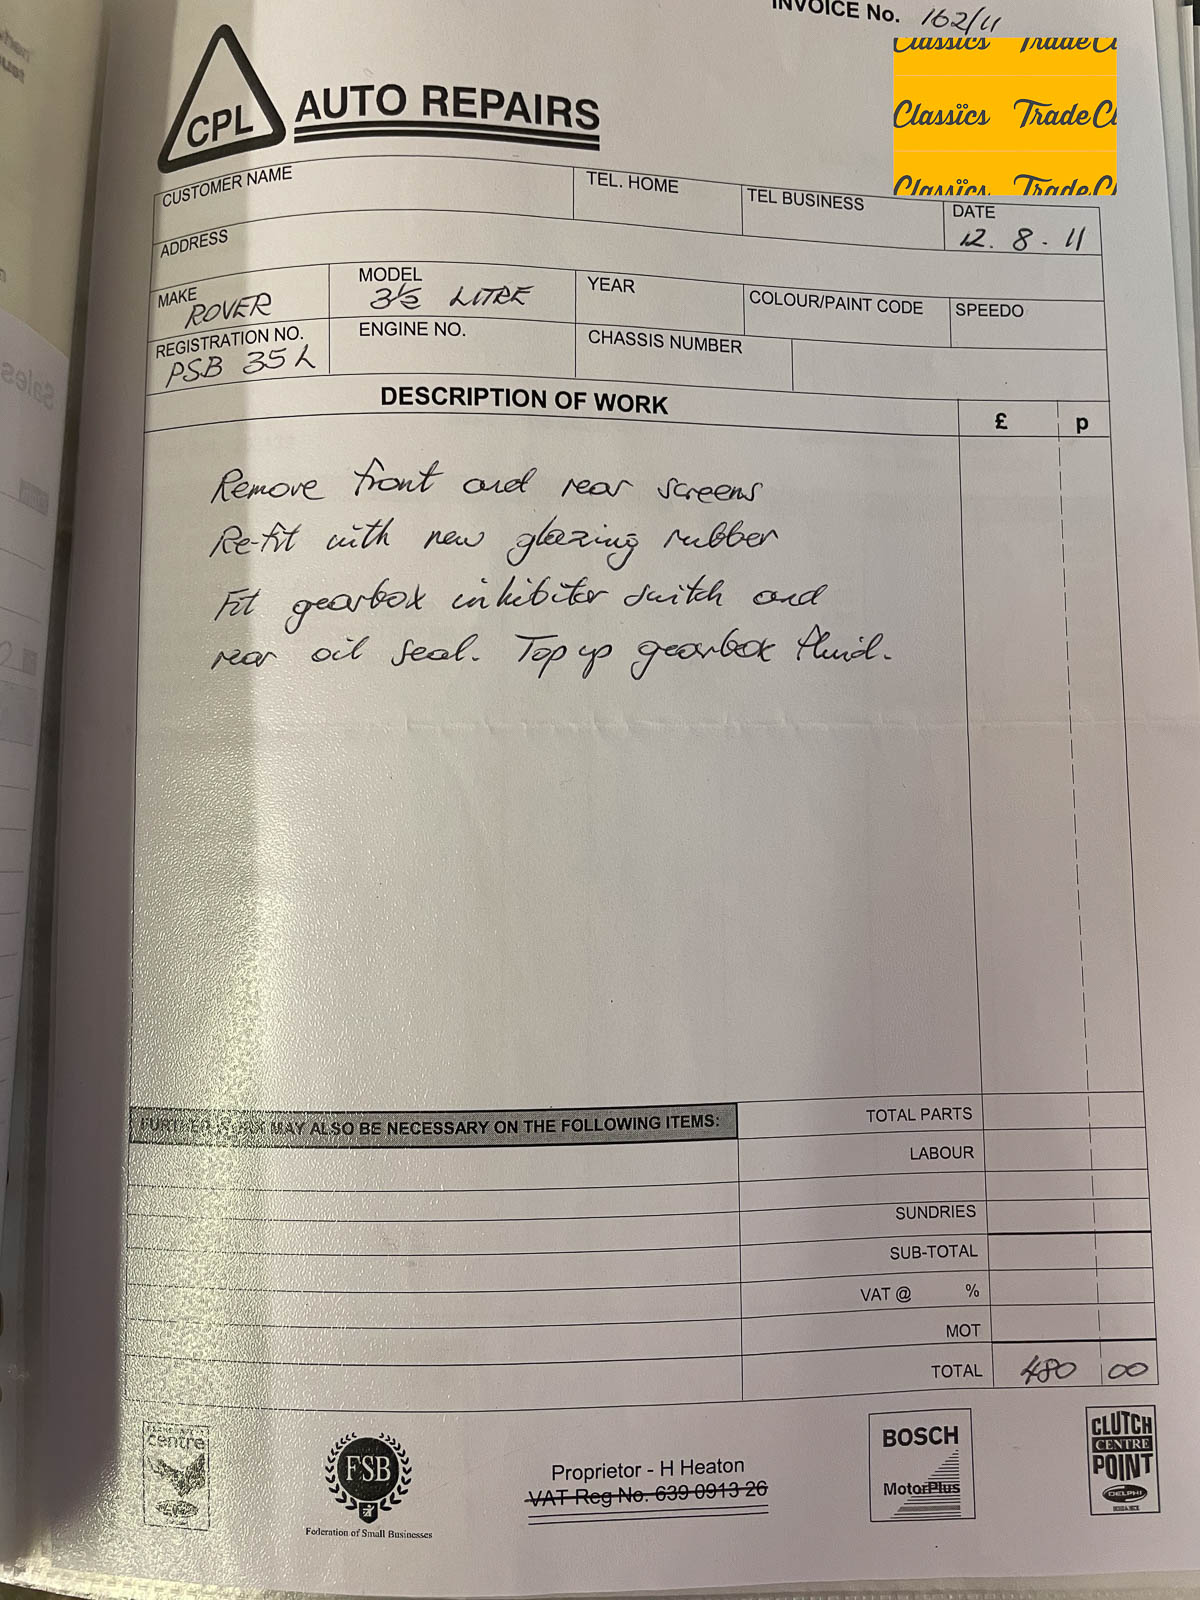 INVOICE No. 162/11
Classics TradeCl
Classics TradeCl
Classics TradeCl
CPL AUTO REPAIRS
CUSTOMER NAME
TEL. HOME
TEL BUSINESS
DATE
12. 8. 11
ADDRESS
MAKE
ROVER
MODEL
3½ LITRE
YEAR
COLOUR/PAINT CODE
SPEEDO
REGISTRATION NO.
PSB 35 L
ENGINE NO.
CHASSIS NUMBER
DESCRIPTION OF WORK
£ p
Remove front and rear screens
Re-fit with new glazing rubber
Fit gearbox inhibitor switch and
rear oil seal. Top up gearbox fluid.
FURTHER WORK MAY ALSO BE NECESSARY ON THE FOLLOWING ITEMS:
TOTAL PARTS
LABOUR
SUNDRIES
SUB-TOTAL
VAT @ %
MOT
TOTAL 480 00
centre
FSB
Federation of Small Businesses
Proprietor - H Heaton
VAT Reg No. 639 0913 26
BOSCH
MotorPlus
CLUTCH
CENTRE
POINT
DELPHI